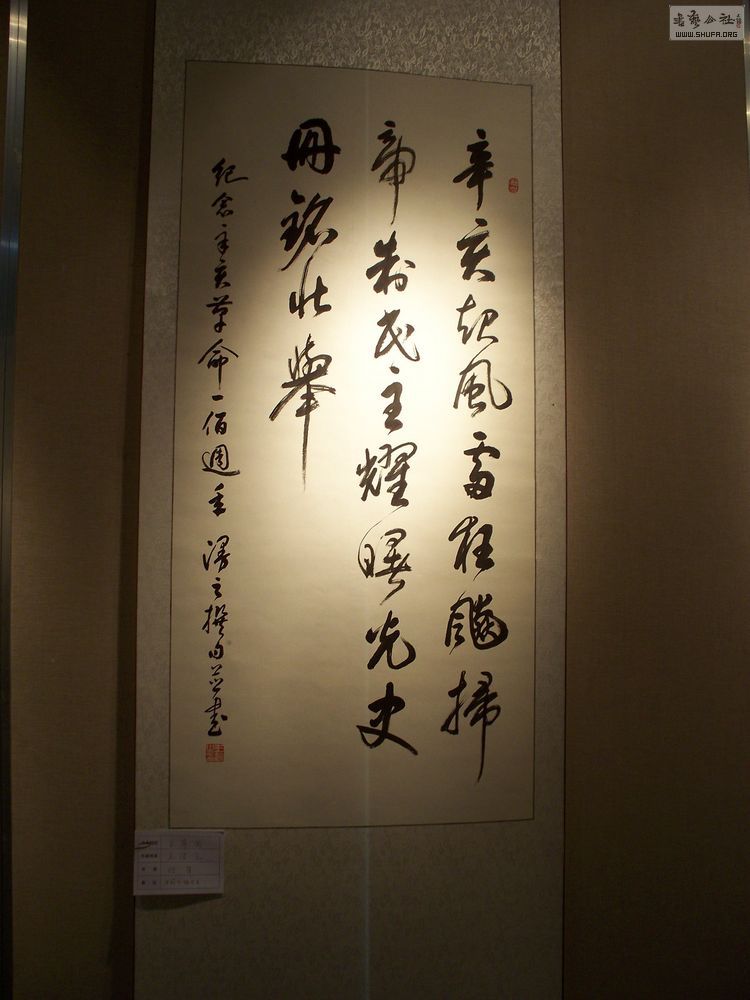 辛亥起風雷狂飈掃
帝制民主耀曙光史
冊銘壯舉
紀念辛亥革命一佰週年 漫之撰句並書
书艺公社
WWW.SHUFA.ORG